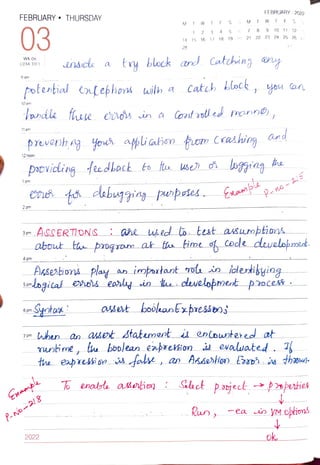 FEBRUARY - 2022
FEBRUARY • THURSDAY
M T W T F S S M T W T F S S
1 2 3 4 5 6 7 8 9 10 11 12 13
14 15 16 17 18 19 20 21 22 23 24 25 26 27
28
03
inside a try block and catching any
9 am
potential exceptions with a catch block, you can
10 am
handle these errors in a controlled manner,
11 am
preventing your application from crashing and
12 noon
providing feedback to the user or logging the
1 pm
error for debugging purposes. Example p.no-215
2 pm
3 pm ASSERTIONS : are used to test assumptions
about the program at the time of code development.
4 pm
Assertions play an important role in identifying
5 pm logical errors early in the development process.
6 pm Syntax: assert booleanExpression;
7 pm When an assert statement is encountered at
runtime, the boolean expression is evaluated. If
the expression is false, an Assertion Error is thrown.
Example P.no-218
To enable assertion : Select project → properties
↓
Run, -ea in vm options
↓
2022
ok